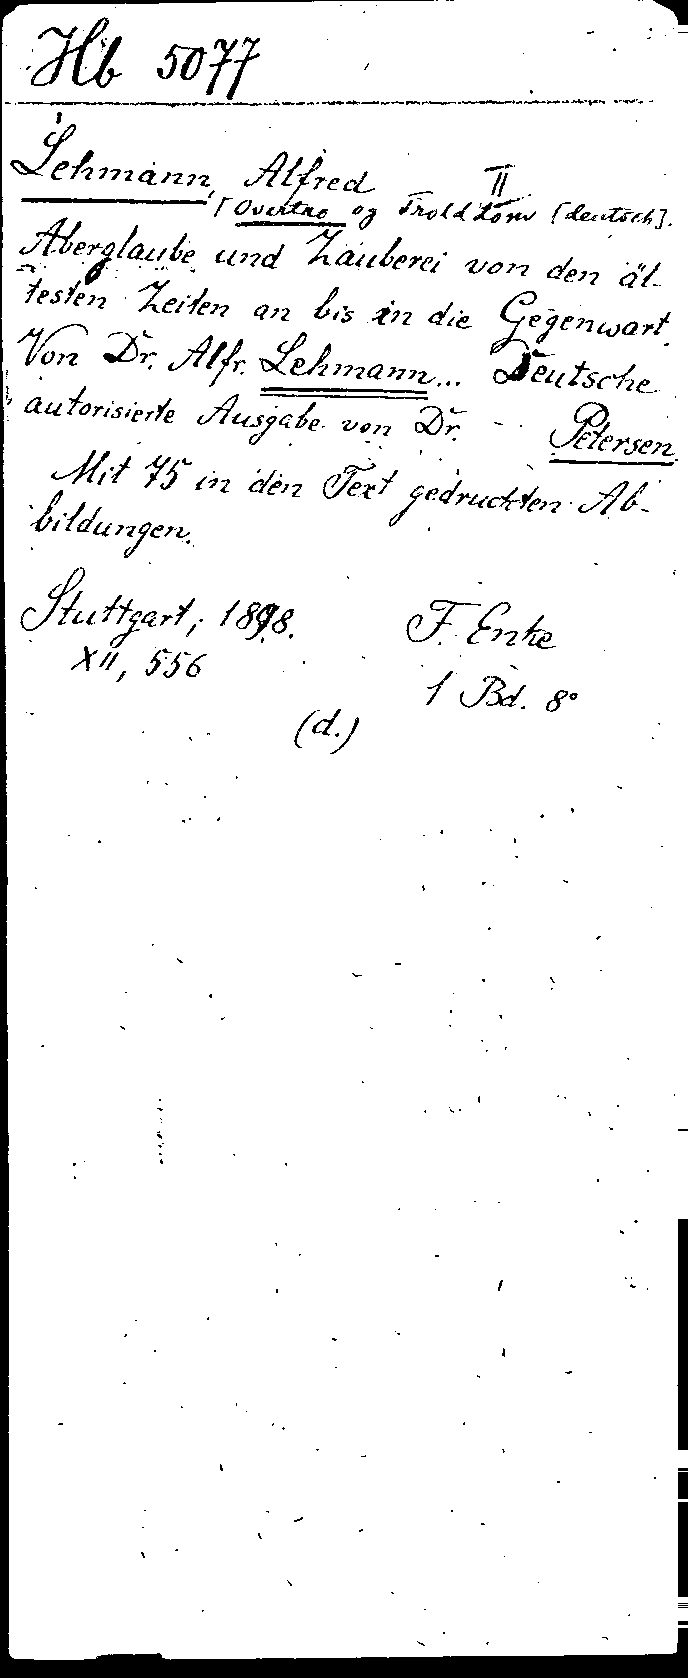 Hb 5077
Lehmann, Alfred II
[Overtro og Trolddom [deutsch].
Aberglaube und Zauberei von den äl-
testen Zeiten an bis in die Gegenwart.
Von Dr. Alfr. Lehmann... Deutsche
autorisierte Ausgabe von Dr. - Petersen.
Mit 75 in den Text gedruckten Ab-
bildungen.
Stuttgart; 1898. F. Enke
XII, 556
1 Bd. 8°
(d.)